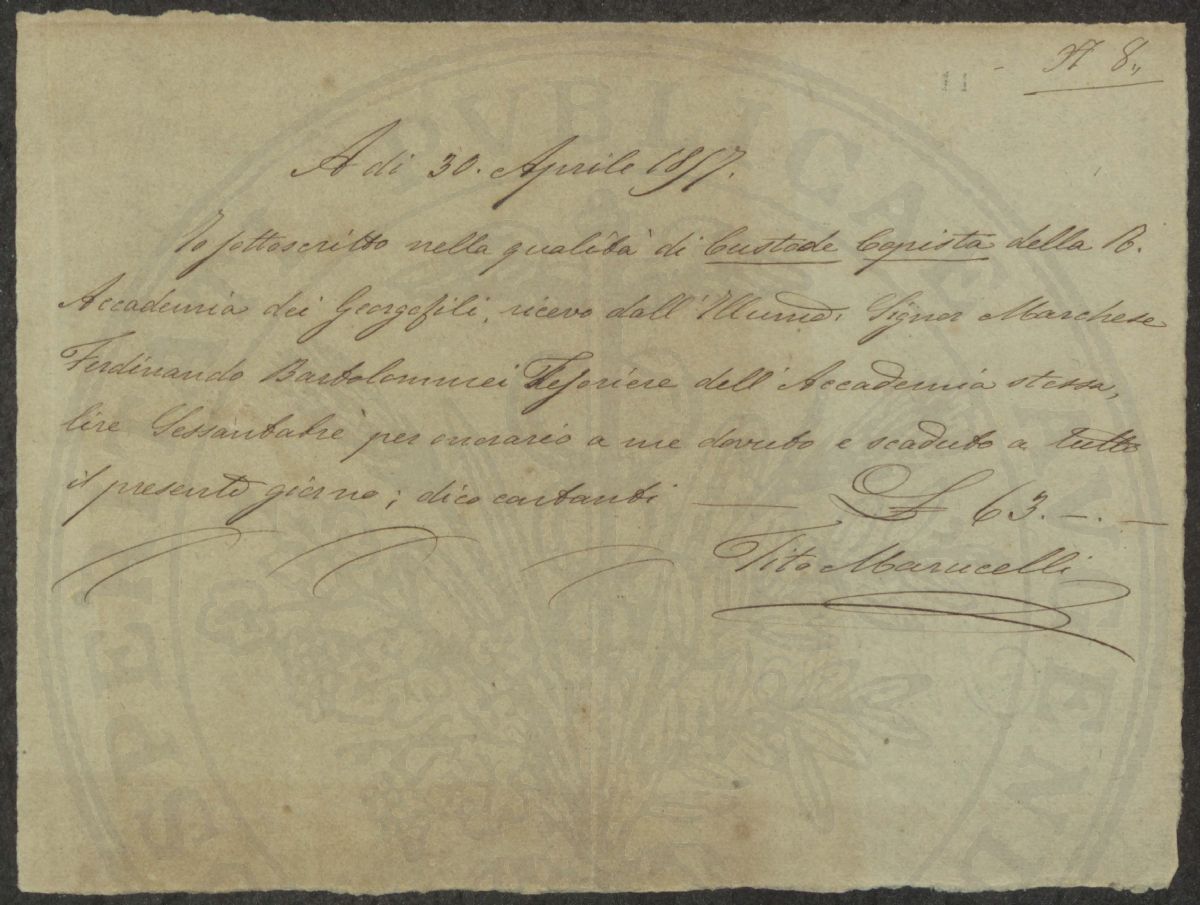 N 8,,
A di 30. Aprile 1857.
Io sottoscritto nella qualità di Custode Copista della R.
Accademia dei Georgofili, ricevo dall' Illumo. Signor Marchese
Ferdinando Bartolommei Tesoriere dell' Accademia stessa,
lire Sessantatrè per onorario a me dovuto e scaduto a tutto
il presente giorno; dico contanti — £ 63. —. —
Tito Marucelli
PUBLICAE